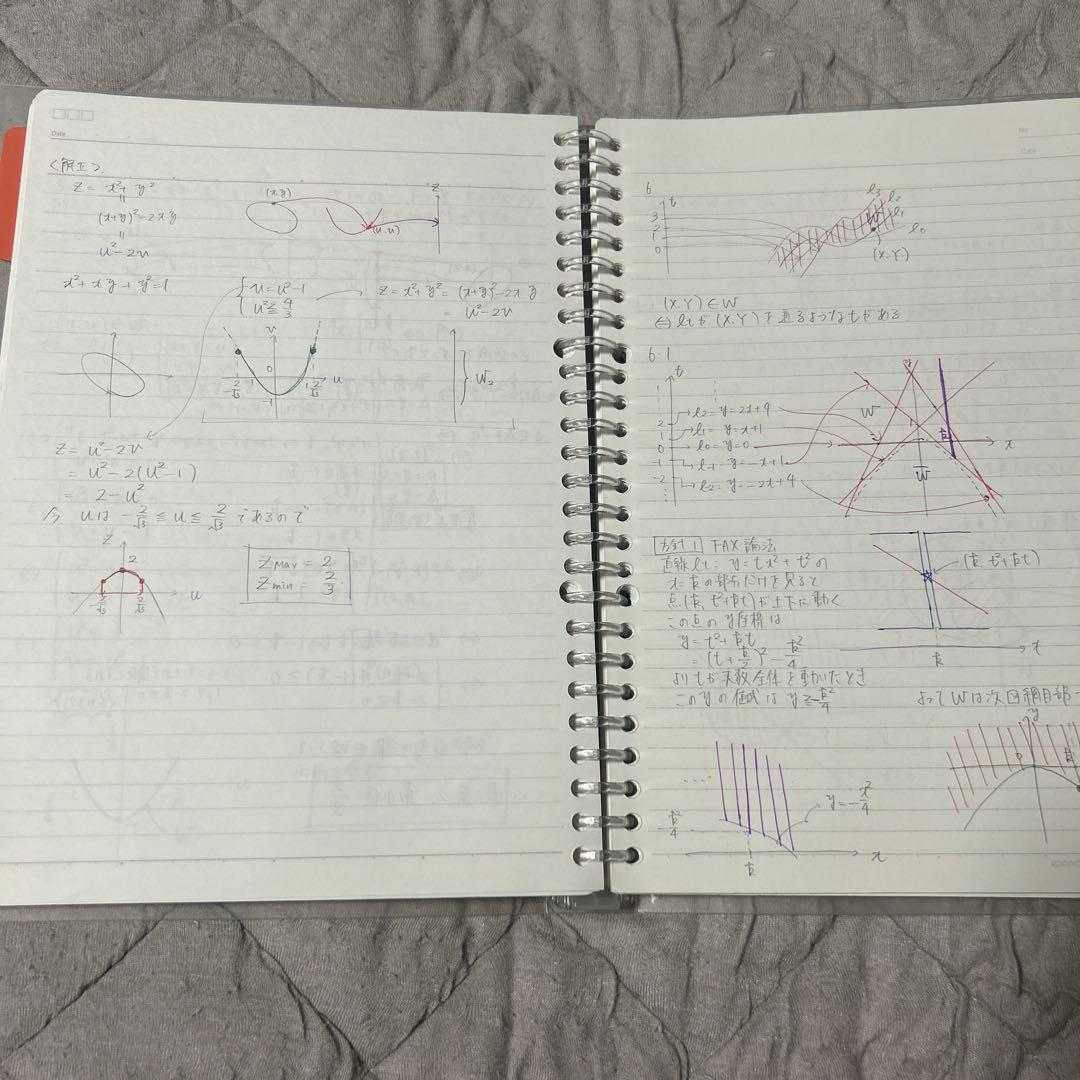 Date
<解Ⅱ>.
z = x²+ y²
=
(x+y)²-2xy
=
u²-2v
(x,y)
(u,u)
z
x²+xy+y²=1
u=u²-1
u²≦ 4/3
z=x²+y²=(x+y)²-2xy
=u²-2v
v
0
-1
-2/√3
-1
1
2/√3
u
W₂
z = u²-2v
= u²-2(u²-1)
= 2-u²
今 uは -2/√3 ≦ u ≦ 2/√3 であるので
z
2
-2/√3
2/√3
u
z MAX = 2
z min = 2/3
No.
Date
6
t
3
2
1
0
l₃
l₂
l₁
l₀
W
(X,Y)
(X,Y)∈W
⇔ ltが(X,Y)を通るようなtがある
6・1
t
2
1
0
-1
-2
l₂=y=2x+4
l₁=y=x+1
l₀=y=0
l₋₁=y=-x+1
l₂=y=-2x+4
W
y
k
x
W̅
方針1 FAX論法
直線lt: y=tx²+t²の
x=kの部分だけを見ると
点(k, t²+kt)が上下に動く
この点のy座標は
y=t²+kt
=(t+k/2)²-k²/4
よりtが実数全体を動いたとき
このyの値域はy≧-k²/4
(k, t²+kt)
k
x
よってWは次図網目部
-k²/4
y=-x²/4
k
x
y
0
k